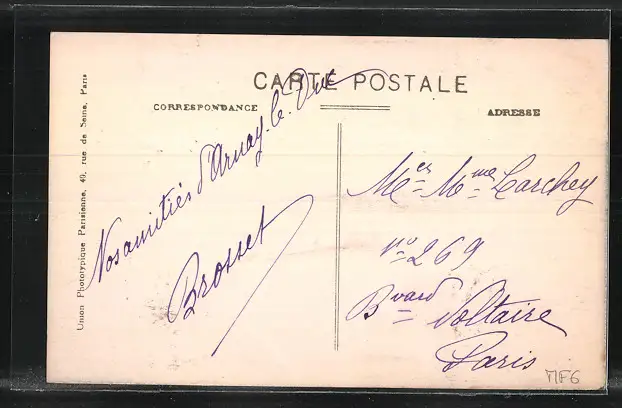 CARTE POSTALE
CORRESPONDANCE
ADRESSE
Union Phototypique Parisienne, 49, rue de Seine, Paris
Nos amitiés d'Arnay-le-Duc
Brosset
Mr et Mme Larchey
no 269
Bvard Voltaire
Paris
MF6